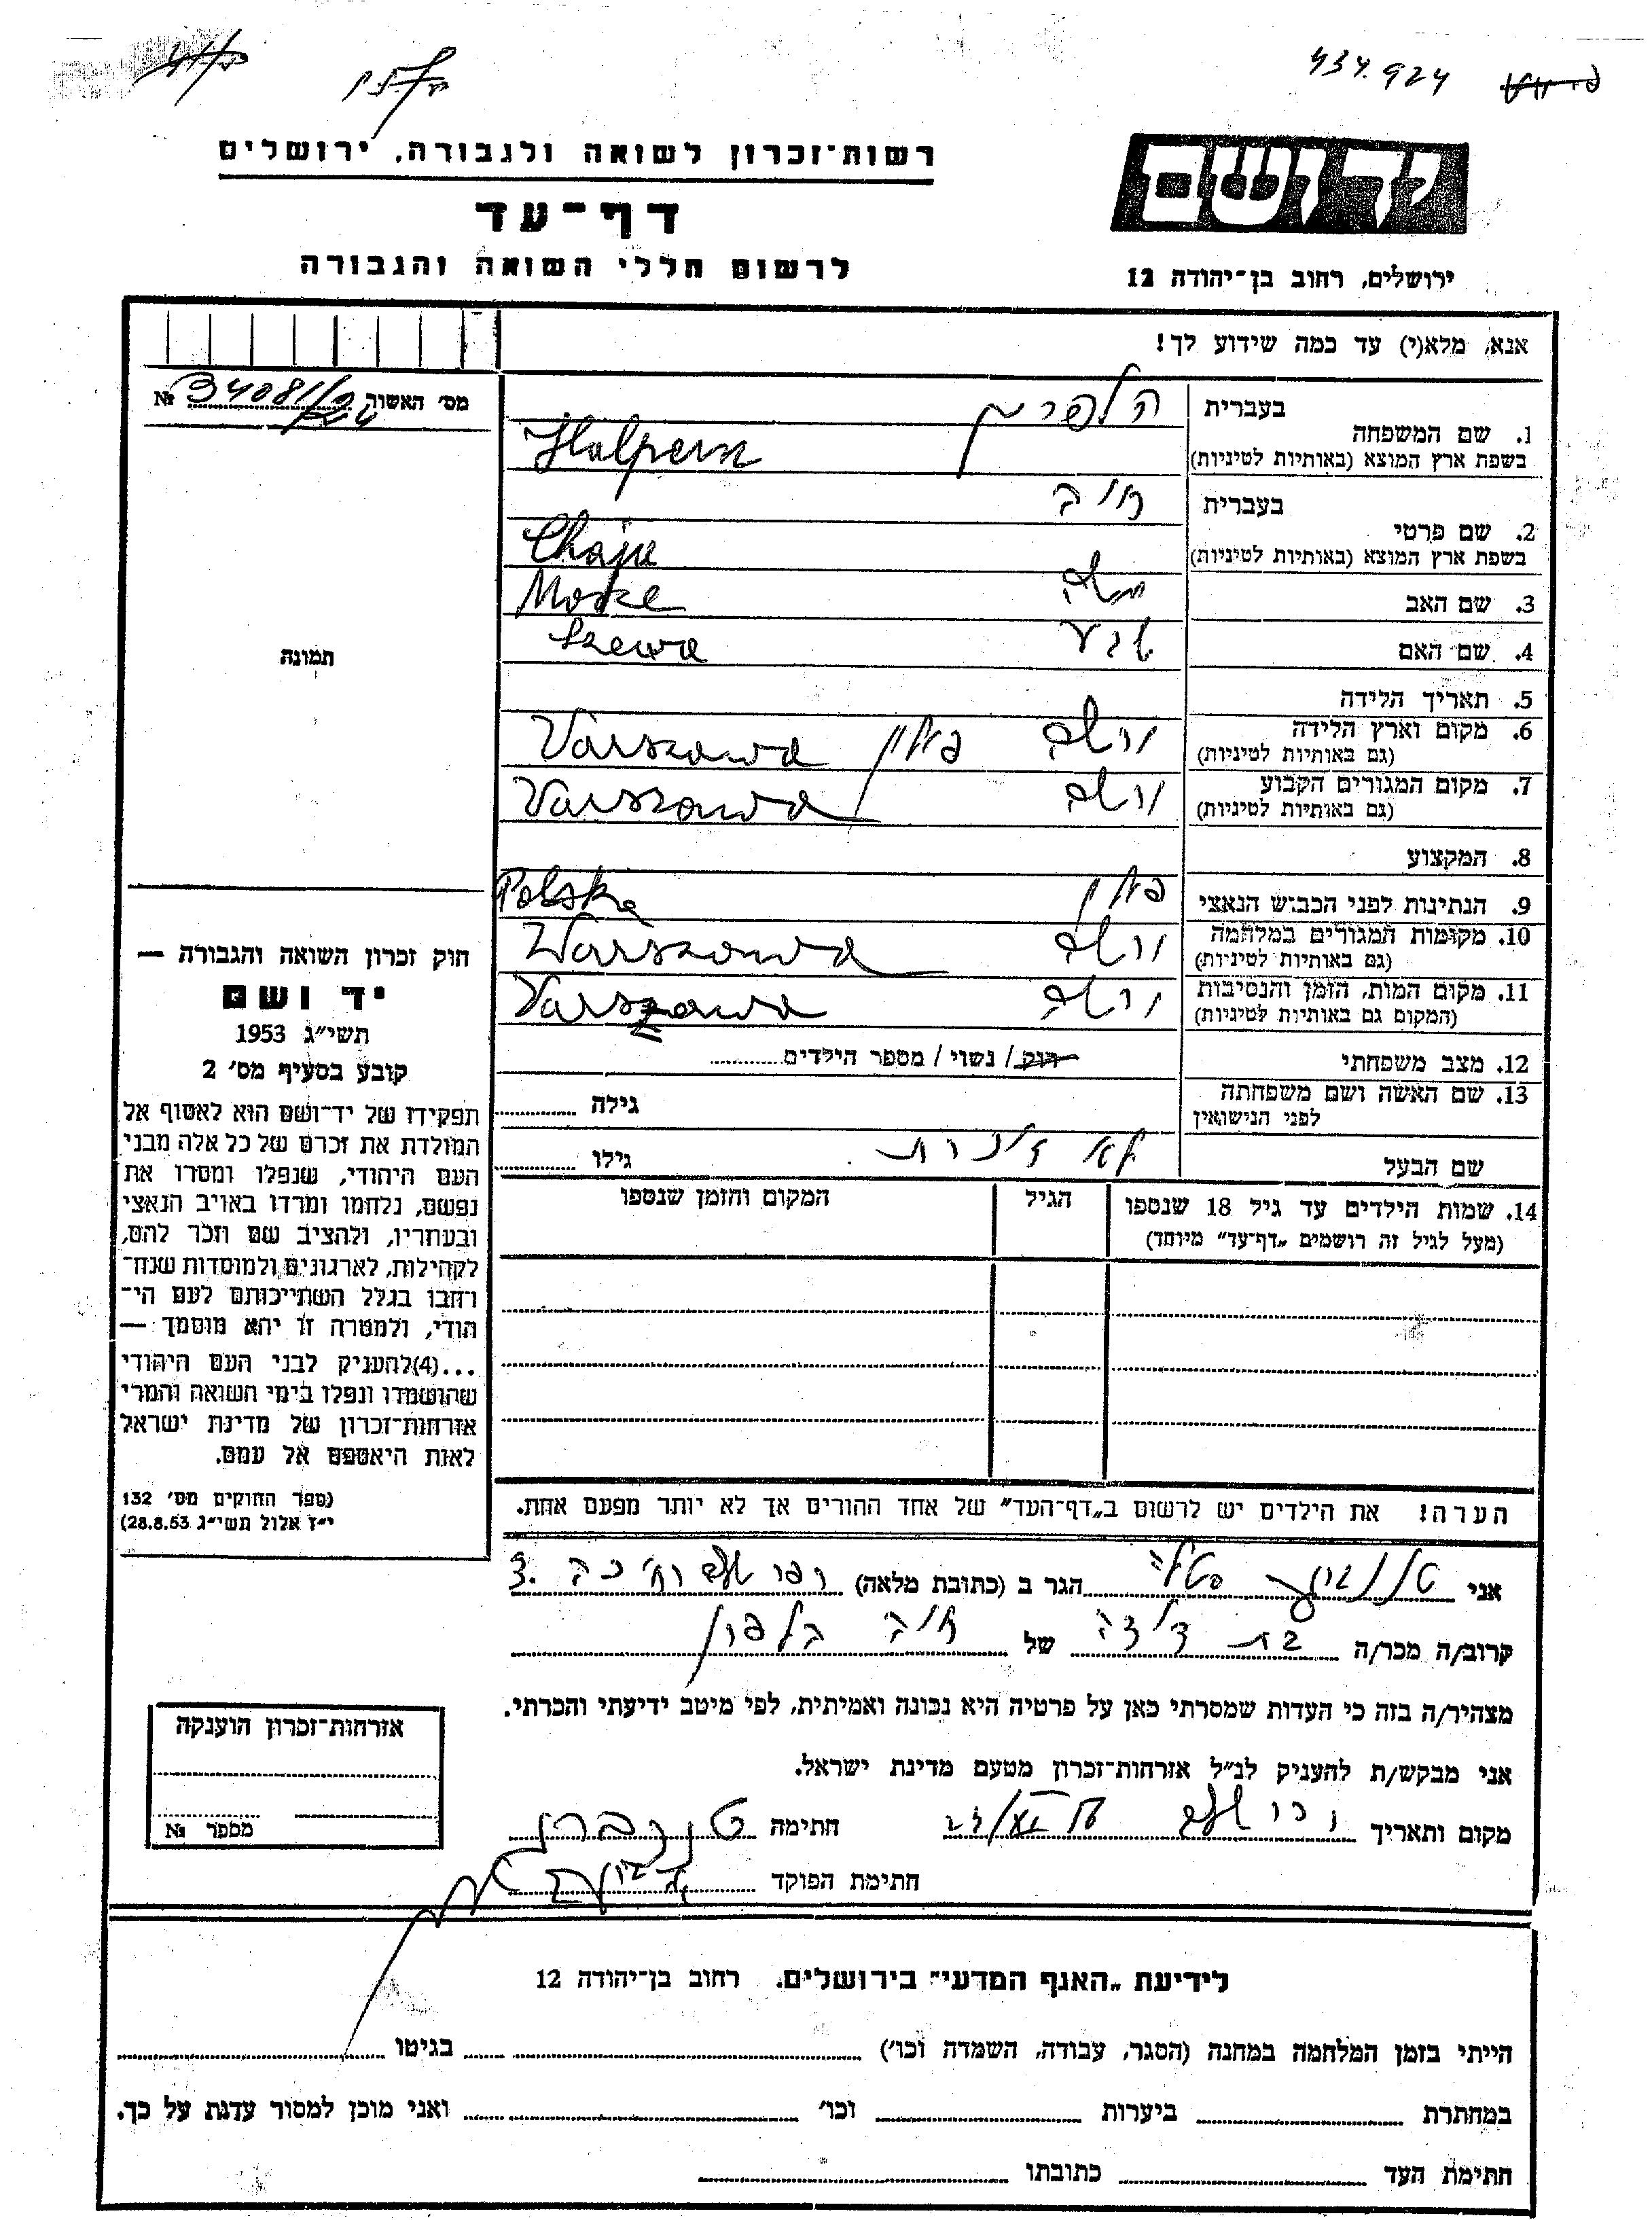 434.924
רשות־זכרון לשואה ולגבורה, ירושלים
יד ושם
דף־עד
לרשום חללי השואה והגבורה
ירושלים, רחוב בן־יהודה 12
אנא, מלא(י) עד כמה שידוע לך!
מס׳ האשור 34081/24 №
תמונה
בעברית הלפרין
1. שם המשפחה
בשפת ארץ המוצא (באותיות לטיניות) Halpern
בעברית חיה
2. שם פרטי
בשפת ארץ המוצא (באותיות לטיניות) Chaja
3. שם האב משה Moske
4. שם האם שבע Szewa
5. תאריך הלידה
6. מקום וארץ הלידה ורשה פולין Varszawa
(גם באותיות לטיניות)
7. מקום המגורים הקבוע ורשה Varszawa
(גם באותיות לטיניות)
8. המקצוע
9. הנתינות לפני הכבוש הנאצי פולין Polska
10. מקומות המגורים במלחמה ורשה Warszawa
(גם באותיות לטיניות)
11. מקום המות, הזמן והנסיבות ורשה Varszawa
(המקום גם באותיות לטיניות)
12. מצב משפחתי רוק / נשוי / מספר הילדים
13. שם האשה ושם משפחתה גילה
לפני הנישואין
שם הבעל לא זוכרת גילו
14. שמות הילדים עד גיל 18 שנספו הגיל המקום והזמן שנספו
(מעל לגיל זה רושמים „דף־עד״ מיוחד)
חוק זכרון השואה והגבורה —
יד ושם
תשי״ג 1953
קובע בסעיף מס׳ 2
תפקידו של יד־ושם הוא לאסוף אל
המולדת את זכרם של כל אלה מבני
העם היהודי, שנפלו ומסרו את
נפשם, נלחמו ומרדו באויב הנאצי
ובעוזריו, ולהציב שם וזכר להם,
לקהילות, לארגונים ולמוסדות שנח־
רחבו בגלל השתייכותם לעם הי־
הודי, ולמטרה זו יהא מוסמך —
...(4)להעניק לבני העם היהודי
שהושמדו ונפלו בימי השואה והמרי
אזרחות־זכרון של מדינת ישראל
לאות היאספם אל עמם.
(ספר החוקים מס׳ 132
י״ז אלול תשי״ג 28.8.53)
הערה! את הילדים יש לרשום ב„דף־העד״ של אחד ההורים אך לא יותר מפעם אחת.
אני הגר ב (כתובת מלאה)
קרוב/ה מכר/ה בת דודה של חיה הלפרן
מצהיר/ה בזה כי העדות שמסרתי כאן על פרטיה היא נכונה ואמיתית, לפי מיטב ידיעתי והכרתי.
אני מבקש/ת להעניק לנ״ל אזרחות־זכרון מטעם מדינת ישראל.
מקום ותאריך חתימה
חתימת הפוקד
אזרחות־זכרון הוענקה
מספר №
לידיעת „האגף המדעי״ בירושלים. רחוב בן־יהודה 12
הייתי בזמן המלחמה במחנה (הסגר, עבודה, השמדה וכו׳) בגיטו
במחתרת ביערות וכו׳ ואני מוכן למסור עדות על כך.
חתימת העד כתובתו